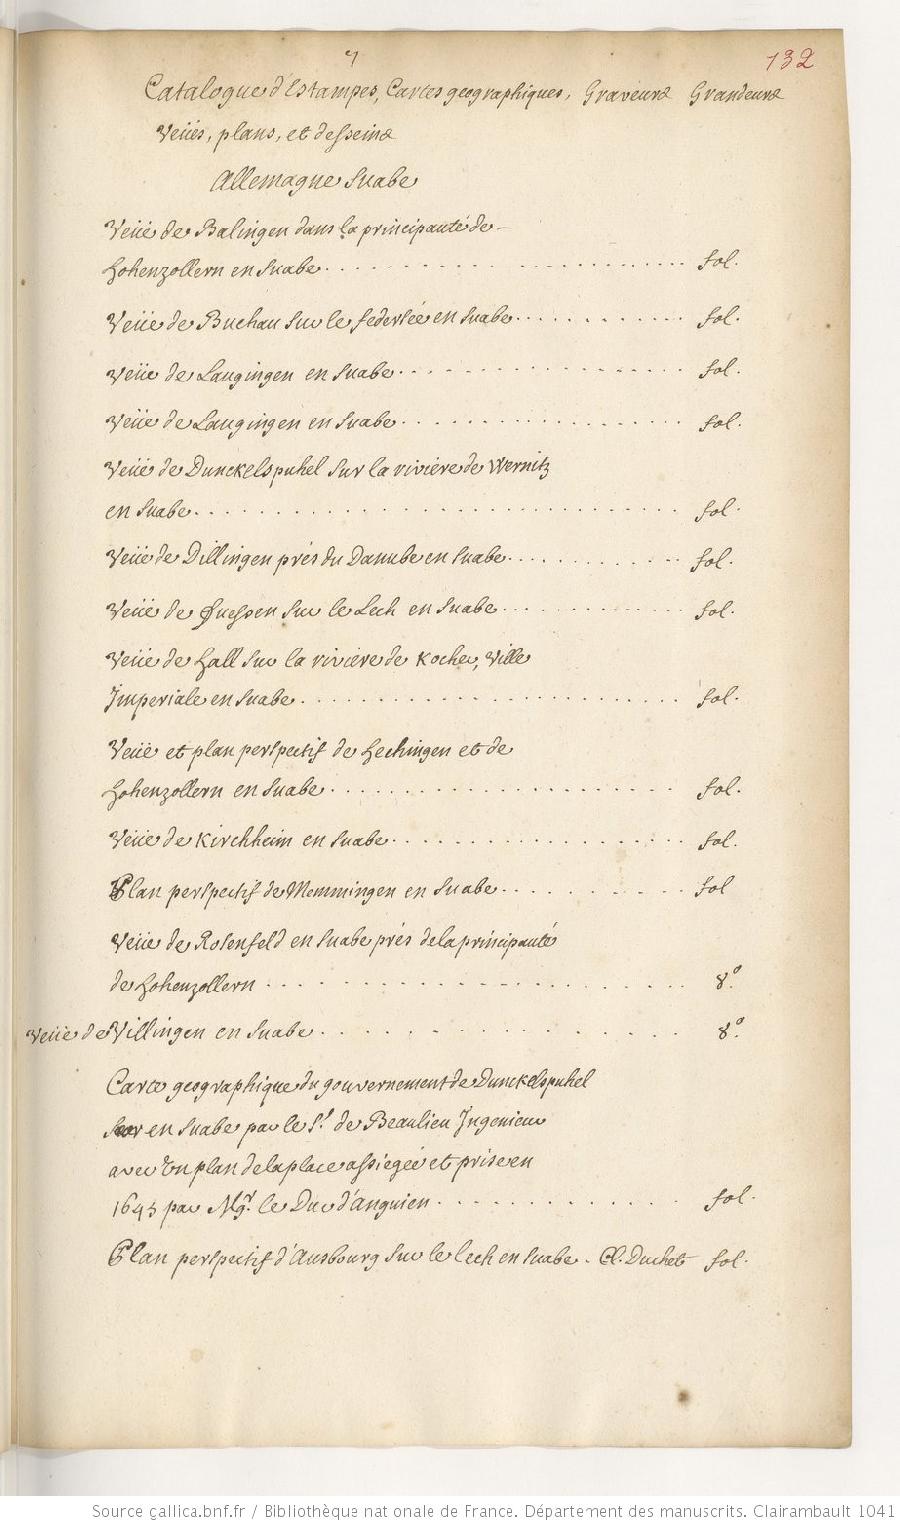 7
132
Catalogue d'Estampes, Cartes geographiques, Graveurs Grandeurs
Veües, plans, et desseins
Allemagne Suabe
Veüe de Balingen dans la principauté de
Hohenzollern en Suabe. fol.
Veüe de Buchau sur le federsée en Suabe. fol.
Veüe de Laugingen en Suabe. fol.
Veüe de Laugingen en Suabe. fol.
Veüe de Dunckelspuhel sur la riviere de Wernitz
en Suabe. fol.
Veüe de Dillingen prés du Danube en Suabe. fol.
Veüe de Fuessen sur le Lech en Suabe. fol.
Veüe de Hall sur la riviere de Kocher, Ville
Imperiale en Suabe. fol.
Veüe et plan perspectif de Hechingen et de
Hohenzollern en Suabe. fol.
Veüe de Kirchheim en Suabe. fol.
Plan perspectif de Memmingen en Suabe. fol
Veüe de Rosenfeld en Suabe prés de la principauté
de Hohenzollern. 8°.
Veüe de Villingen en Suabe. 8°.
Carte geographique du gouvernement de Dunckelspuhel
en Suabe par le Sr. de Beaulieu Ingenieur
avec un plan de la place assiegée et prise en
1645 par Mgr. le Duc d'Anguien. fol.
Plan perspectif d'Ausbourg sur le lech en Suabe. Cl. Duchet fol.
Source gallica.bnf.fr / Bibliothèque nationale de France. Département des manuscrits. Clairambault 1041